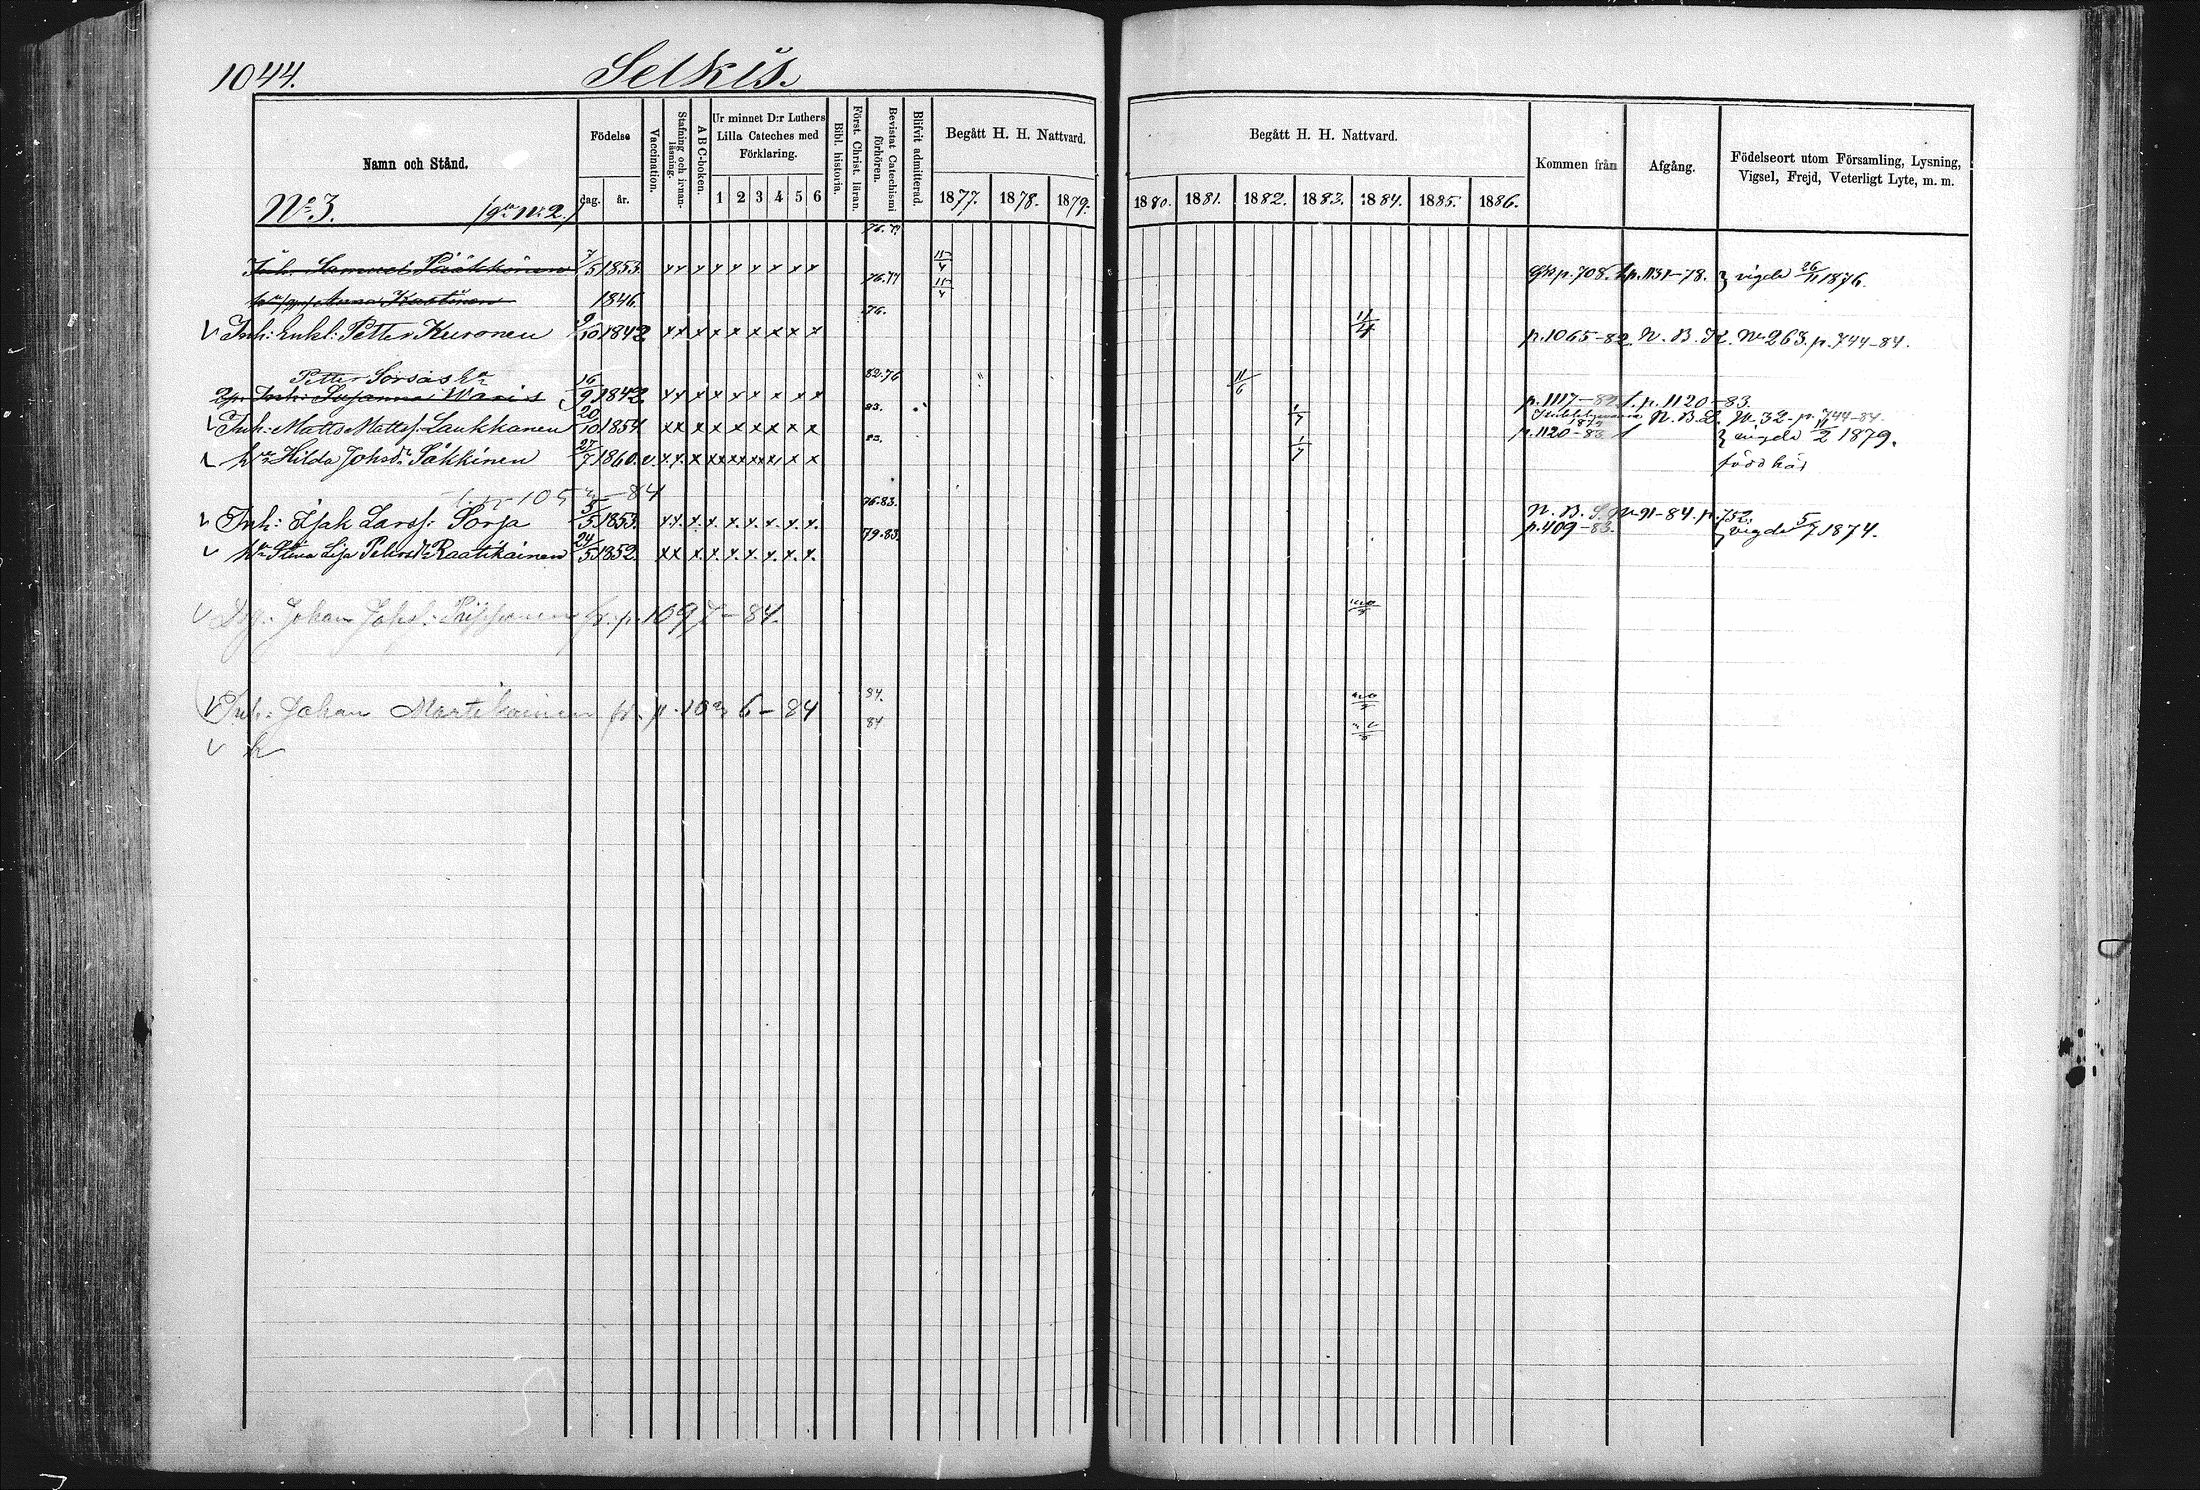 1044.
Selkis.
Namn och Stånd.
Födelse
dag.
år.
Vaccination.
Stafning och innan-läsning.
A B C-boken.
Ur minnet D:r Luthers
Lilla Cateches med
Förklaring.
1 2 3 4 5 6
Bibl. historia.
Först. Christ. läran.
Bevistat Catechismi förhören.
Blifvit admitterad.
Begått H. H. Nattvard.
1877. 1878. 1879.
Begått H. H. Nattvard.
1880. 1881. 1882. 1883. 1884. 1885. 1886.
Kommen från
Afgång.
Födelseort utom Församling, Lysning,
Vigsel, Frejd, Veterligt Lyte, m. m.
No 3.
76. 77
Inh. Samuel Pääkkönen 7/5 1853. x x x x x x x x x 15/4 p. 708. p. 1131–78. } vigde 26/11 1876.
76. 77
Anna 1846. 15/4
76.
Inh: Enkl: Petter Kuronen 9/10 1842 x x x x x x x x x 11/4 p. 1065–82. N. B. K. No 263. p. 744–84.
Petter Sorsas
82. 76
Inh: Susanna Waris 16/9 1842 x x x x x x x x x 11/6 p. 1117–82. p. 1120–83.
83.
Inh: Matts Mattss: Laukkanen 20/10 1854 x x x x x x x x x 1/7 N. B. No 32. p. 744–84
p. 1120–83 } vigde 11/2 1879.
hu Hilda Johsdr Säkkinen 27/7 1860. v. x x x x x x x x x 1/7
född här
–84
76. 83.
Inh: Isak Larss: Sorsa 5/5 1853. x x x x x x x x x N. B. –84. p. 752.
p. 409–83. } vigde 5/7 1874.
79. 83.
hu Stina Lisa Petersdr Raatikainen 24/5 1852. x x x x x x x x x
Johan p. 1097–84.
84.
Inh: Johan Martikainen fr. p. –84
84
h